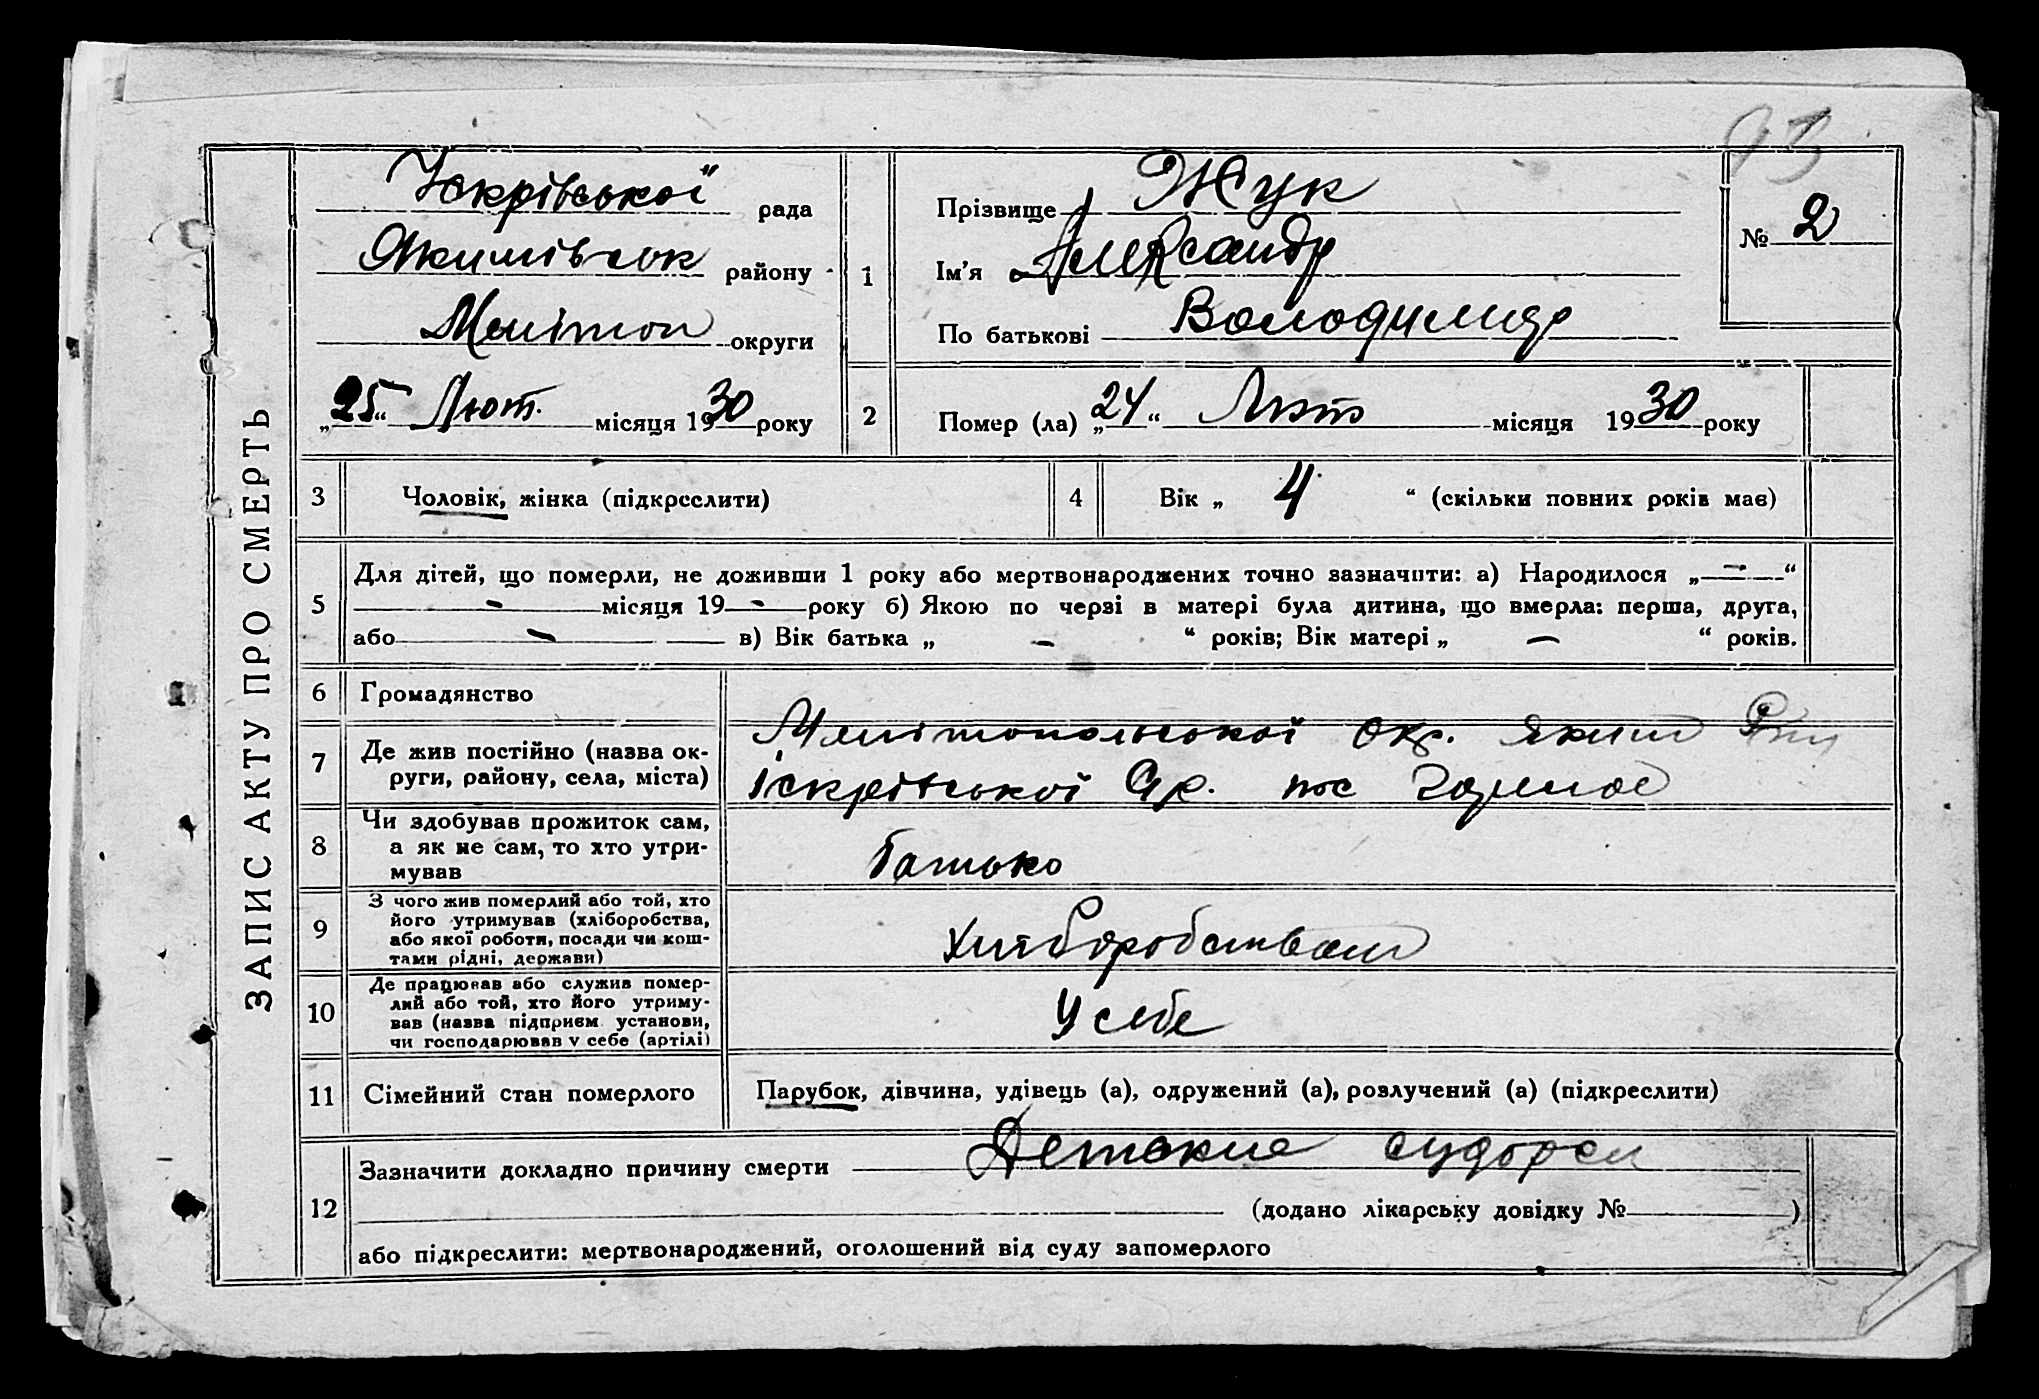 93
ЗАПИС АКТУ ПРО СМЕРТЬ
Іскрівської рада
Якимівськ району
Меліtoп округи
„25“ Лют. місяця 1930 року
1
Прізвище Жук
Ім'я Александр
По батькові Володимир
№ 2
2
Помер (ла) „24“ Лют місяця 1930 року
3
Чоловік, жінка (підкреслити)
4
Вік „ 4 “ (скільки повних років має)
5
Для дітей, що померли, не доживши 1 року або мертвонароджених точно зазначити: а) Народилося „ — “
— місяця 19 — року б) Якою по черзі в матері була дитина, що вмерла: перша, друга,
або — в) Вік батька „ — “ років; Вік матері „ — “ років.
6
Громадянство
7
Де жив постійно (назва ок-
руги, району, села, міста)
Мелітопольської окр. Яким Рну
Іскрівської с/р. пос
8
Чи здобував прожиток сам,
а як не сам, то хто утри-
мував
батько
9
З чого жив померлий або той, хто
його утримував (хліборобства,
або якої роботи, посади чи кош-
тами рідні, держави)
Хліборобством
10
Де працював або служив помер-
лий або той, хто його утриму-
вав (назва підприєм. установи,
чи господарював у себе (артілі)
У себе
11
Сімейний стан померлого
Парубок, дівчина, удівець (а), одружений (а), розлучений (а) (підкреслити)
12
Зазначити докладно причину смерти Детские судорги
(додано лікарську довідку № )
або підкреслити: мертвонароджений, оголошений від суду запомерлого